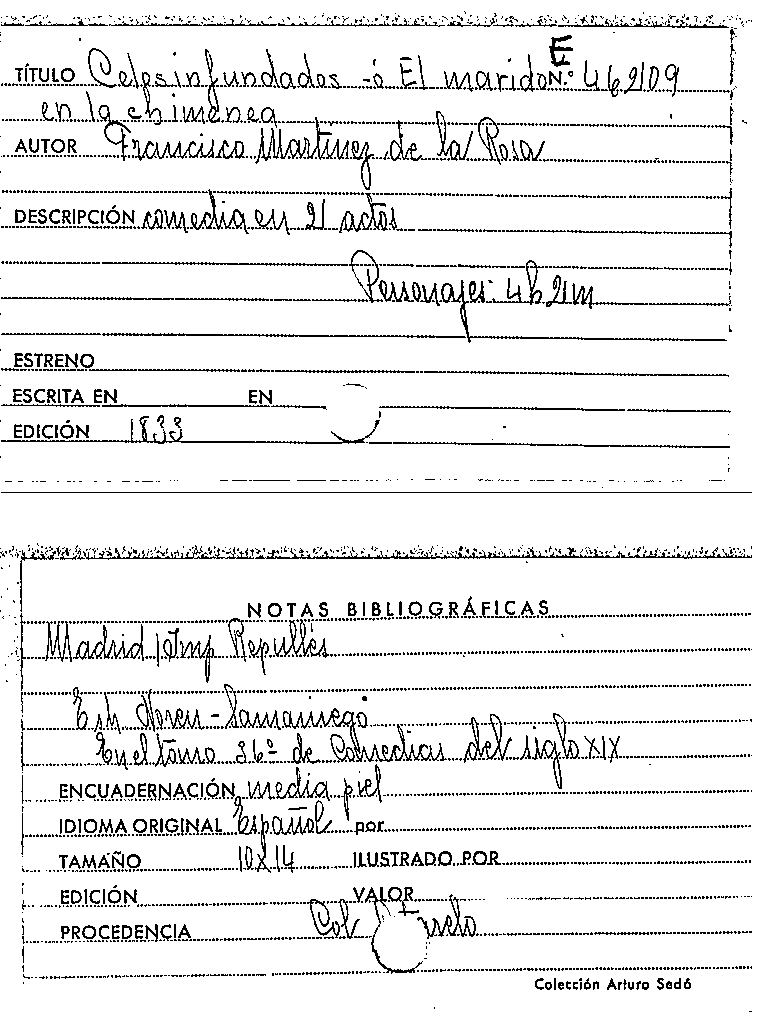 E
TÍTULO Celos infundados -ó El marido N.º 46209
en la chimenea
AUTOR Francisco Martínez de la Rosa
DESCRIPCIÓN comedia en 2 actos
Personajes: 4 h 2 m
ESTRENO
ESCRITA EN EN
EDICIÓN 1833
NOTAS BIBLIOGRÁFICAS
Madrid Imp Repullés
Samaniego
En el tomo 36º de Comedias del siglo XIX
ENCUADERNACIÓN media piel
IDIOMA ORIGINAL Español por
TAMAÑO 10x14 ILUSTRADO POR
EDICIÓN VALOR
PROCEDENCIA Col
Colección Arturo Sedó